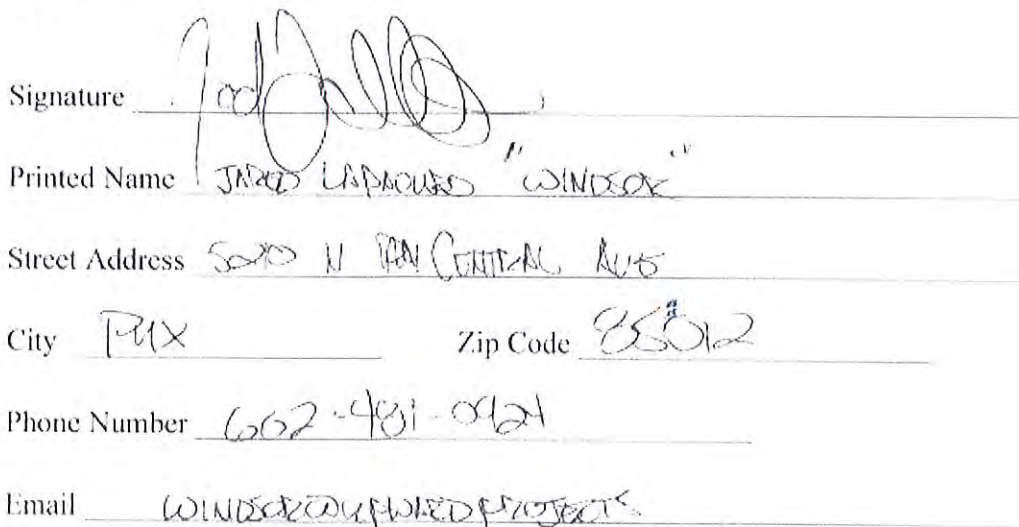 Signature
Printed Name JARED "WINDSOR"
Street Address N CENTRAL AVE
City PHX Zip Code 85012
Phone Number 602-481-0924
Email WINDSOR@UPWARDPROJECTS